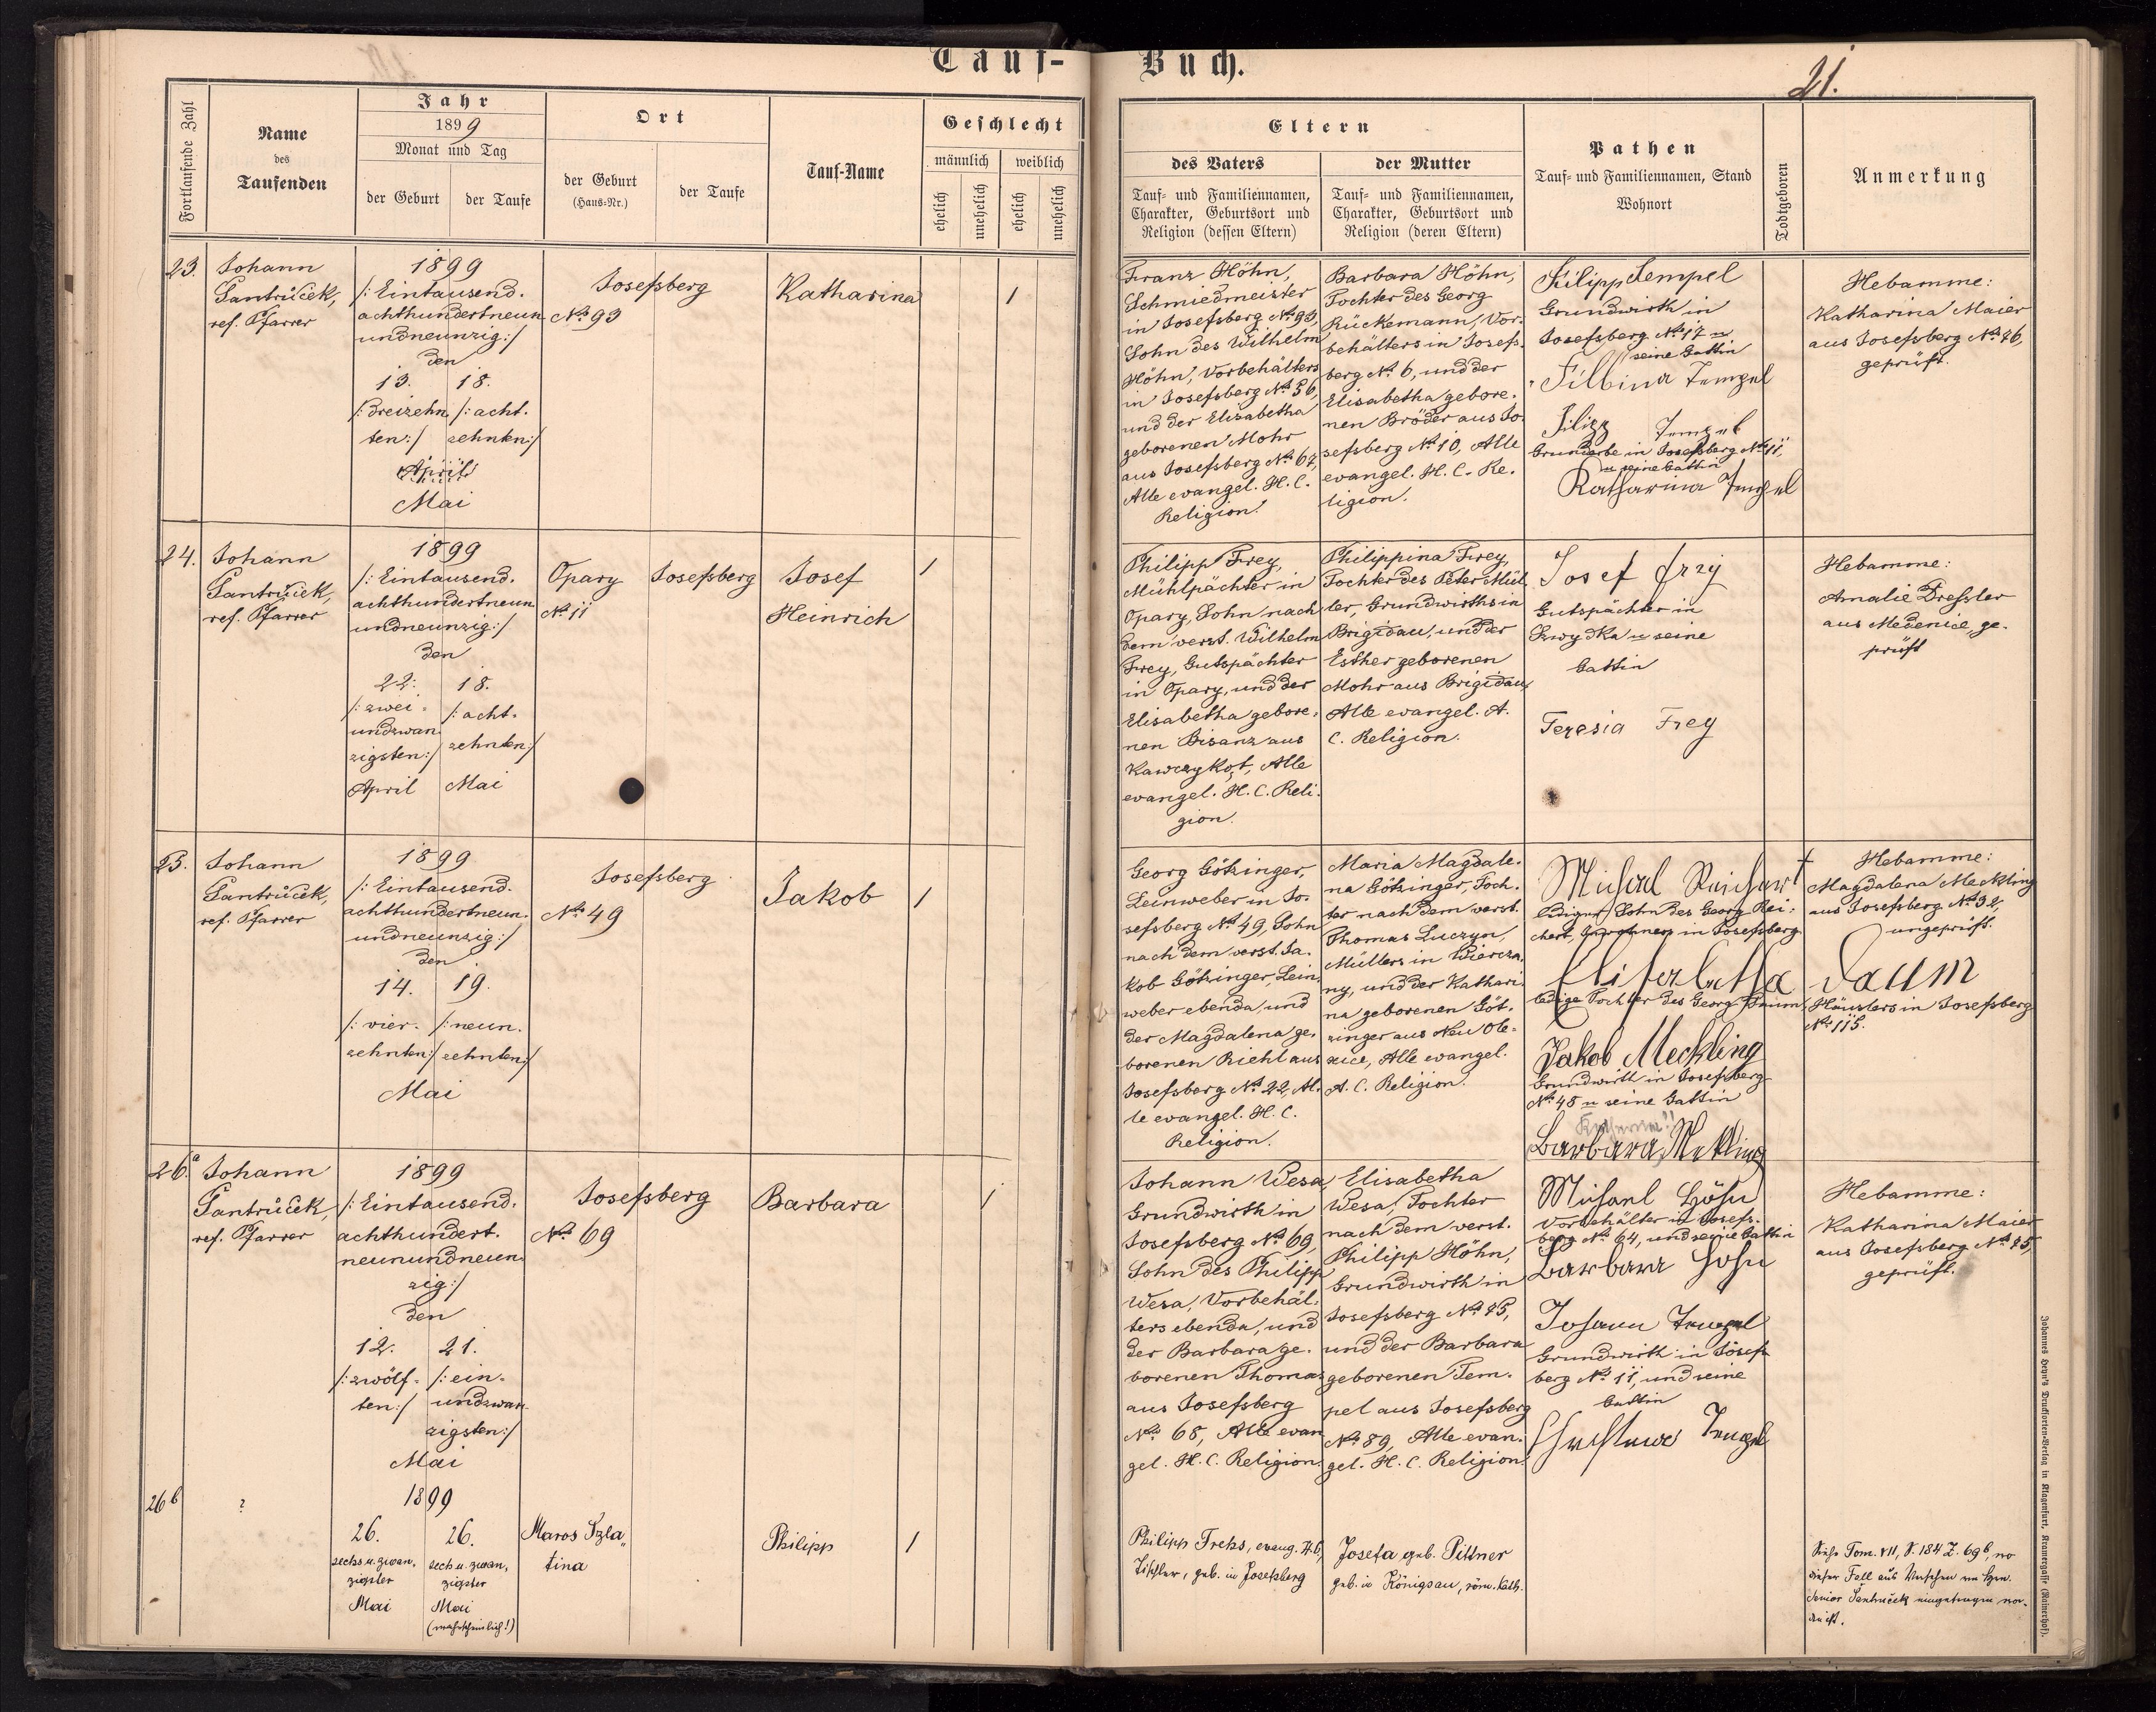 Tauf-
Buch.
21.
Fortlaufende Zahl
Name
des
Taufenden
Jahr
1899
Monat und Tag
der Geburt
der Taufe
Ort
der Geburt
(Haus-Nr.)
der Taufe
Tauf-Name
Geschlecht
männlich
weiblich
ehelich
unehelich
ehelich
unehelich
Eltern
des Vaters
Tauf- und Familiennamen,
Charakter, Geburtsort und
Religion (dessen Eltern)
der Mutter
Tauf- und Familiennamen,
Charakter, Geburtsort und
Religion (deren Eltern)
Pathen
Tauf- und Familiennamen, Stand
Wohnort
Todtgeboren
Anmerkung
23.
Johann
Pantrůček,
ref. Pfarrer
1899
/: Eintausend-
achthundertneun
undneunzig:/
den
13.
18.
/: dreizehn
ten:/
/: acht-
zehnten:/
April
Mai
Josefsberg
No 93
Katharina
1
Franz Höhn,
Schmiedmeister
in Josefsberg No 93,
Sohn des Wilhelm
Höhn, Vorbehälters
in Josefsberg No 56,
und der Elisabetha
geborenen Mohr
aus Josefsberg No 67,
Alle evangel. H. C.
Religion.
Barbara Höhn,
Tochter des Georg
Rückemann, Vor-
behälters in Josefs-
berg No 6, und der
Elisabetha gebore-
nen Bröder aus Jo-
sefsberg No 10, Alle
evangel. H. C. Re-
ligion.
Filipp Tempel
Grundwirth in
Josefsberg No 17 u
seine Gattin
Filbina Tempel
Filipp Tempel
Grunderbe in Josefsberg No 11,
u seine Gattin
Katharina Tempel
Hebamme:
Katharina Maier
aus Josefsberg No 76,
geprüft.
24.
Johann
Pantrůček,
ref. Pfarrer
1899
/: Eintausend-
achthundertneun
undneunzig:/
den
22.
18.
/: zwei-
undzwan
zigsten:/
/: acht-
zehnten:/
April
Mai
Opary
No 11
Josefsberg
Josef
Heinrich
1
Philipp Frey,
Mühlpächter in
Opary, Sohn nach
dem verst. Wilhelm
Frey, Gutspächter
in Opary, und der
Elisabetha gebore-
nen Bisanz aus
Kawczykąt, Alle
evangel. H. C. Reli-
gion.
Philippina Frey,
Tochter des Peter Mül
ler Grundwirths in
Brigidau, und der
Esther geborenen
Mohr aus Brigidau,
Alle evangel. A.
C. Religion.
Josef Frey
Gutspächter in
u seine
Gattin
Teresia Frey
Hebamme:
Amalie Dressler
aus Medenice, ge-
prüft
25.
Johann
Pantrůček,
ref. Pfarrer
1899
/: Eintausend-
achthundertneun-
undneunzig:/
den
14.
19.
/: vier-
zehnten:/
/: neun-
zehnten:/
Mai
Josefsberg
No 49
Jakob
1
Georg Götzinger,
Leinweber in Jo-
sefsberg No 49, Sohn
nach dem verst. Ja-
kob Götzinger, Lein
weber ebenda, und
der Magdalena ge-
borenen Riehl aus
Josefsberg No 22, Al-
le evangel. H. C.
Religion.
Maria Magdale-
na Götzinger, Toch-
ter nach dem verst.
Thomas Luczyn,
Müllers in Wiercza
ny, und der Kathari
na geborenen Göt-
zinger aus Neu Ole-
xice, Alle evangel.
A. C. Religion.
Michael Reichert
lediger Sohn des Georg Rei-
chert, in Josefsberg
Elisabetha Daum
ledige Tochter des Georg Daum, Häuslers in Josefsberg
No 115.
Jakob Meckling
Grundwirth in Josefsberg
No 48 u seine Gattin
Katharina!!
Barbara Mekling
†
Hebamme:
Magdalena Meckling
aus Josefsberg No 32,
ungeprüft.
26.a
Johann
Pantrůček,
ref. Pfarrer
1899
/: Eintausend-
achthundert-
neunundneun-
zig:/
den
12.
21.
/: zwölf-
ten:/
/: ein-
undzwan-
zigsten:/
Mai
Josefsberg
No 69
Barbara
1
Johann Wesa,
Grundwirth in
Josefsberg No 69,
Sohn des Philipp
Wesa, Vorbehäl-
ters ebenda, und
der Barbara ge-
borenen Thomas
aus Josefsberg
No 68, Alle evan
gel. H. C. Religion.
Elisabetha
Wesa, Tochter
nach dem verst.
Philipp Höhn,
Grundwirth in
Josefsberg No 75,
und der Barbara
geborenen Tem-
pel aus Josefsberg
No 89, Alle evan-
gel. H. C. Religion.
Michael Höhn
Vorbehälter in Josefs-
berg No 64, und seine Gattin
Barbara Höhn
Johann Tempel
Grundwirth in Josefs
berg No 11, und seine
Gattin
Tempel
Hebamme:
Katharina Maier
aus Josefsberg No 75,
geprüft.
26b
?
1899
26.
26.
sechs u. zwan-
zigster
Mai
sech u. zwan-
zigster
Mai
(wahrscheinlich!)
Maros Szla„
tina
Philipp
1
Philipp Treks, evang. H. C.,
Tischler, geb. in Josefsberg
Josefa geb. Pittner
geb. in Königsau, röm. kath.
Siehe Tom. VII, S. 184 Z. 69b, wo
dieser Fall aus Versehen von Hrn.
Senior Pantrůček eingetragen wor-
den ist.
Johannes Heyn's Drucksorten-Verlag in Klagenfurt, Kramergasse (Rainerhof).